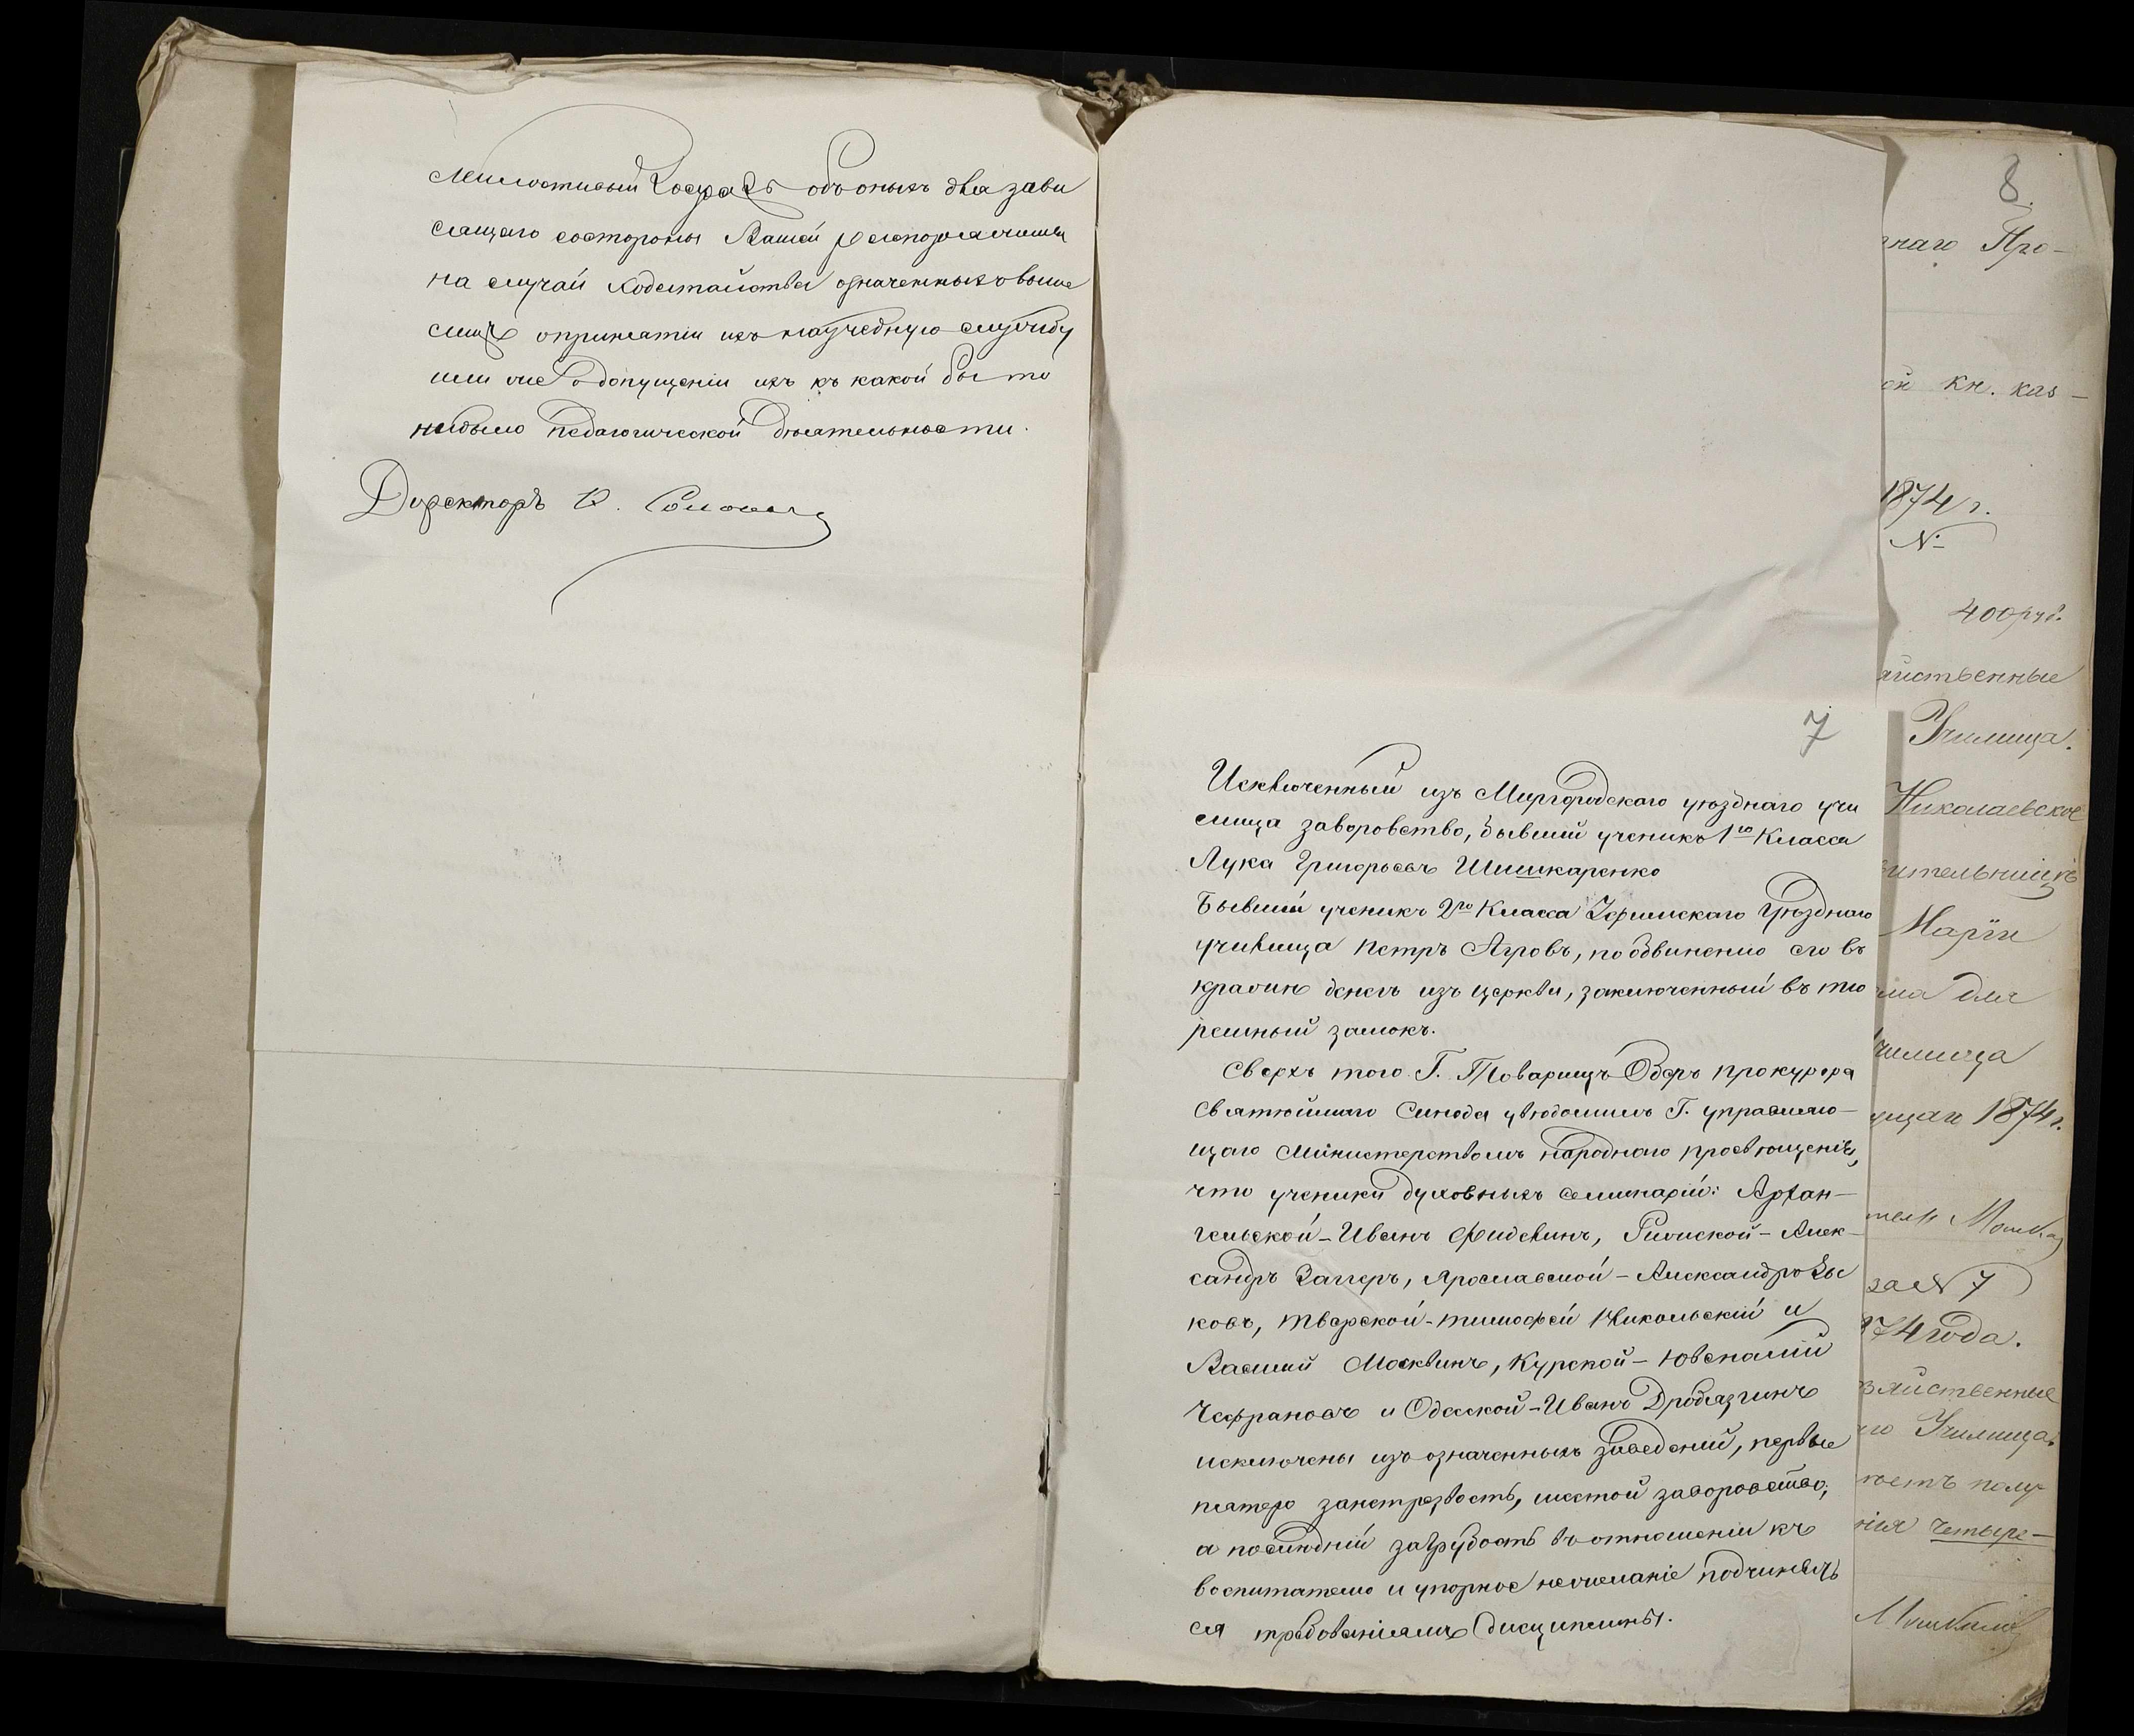 Милостивый Государь объ оныхъ для зави
сящаго состороны Вашей распоряженія
на случай ходатайства означенныхъ выше
лицъ опринятіи ихъ научебную службу
или же о допущеніи ихъ къ какой бы то
нибыло педагогической дѣятельности.
Директоръ
7
Исключенный изъ Миргородскаго уѣзднаго учи
лища заворовство, бывшій ученикъ 1го Класса
Лука Григорьевъ Шишкаренко
Бывшій ученикъ 2го Класса Уфимскаго Уѣзднаго
училища Петръ Агровъ, по обвиненію его въ
кражѣ денегъ изъ церкви, заключенный въ тю
ремный замокъ.
Сверхъ того Г. Товарищъ Оберъ прокурора
Святѣйшаго Синода увѣдомилъ Г. управляю-
щаго Министерствомъ народнаго просвѣщенія,
что ученики духовныхъ семинарій: Архан-
гельской - Иванъ Фиделинъ, Рижской - Алек-
сандръ Заггеръ, Ярославской - Александръ Зы
ковъ, Тверской - Тимофей Никольскій и
Василий Москвинъ, Курской - Ювеналій
Чефрановъ и Одесской - Иванъ Дроблзгинъ
исключены изъ означенныхъ заведеній, первые
пятеро занетрезвость, шестой заворовство,
а послѣдній загрубость въ отношеніи къ
воспитателю и упорное нежеланіе подчинять
ся требованіямъ дисциплины.
8.
наго Про-
ой кн. каз-
1874 г.
№
400 руб.
яйственные
Училища.
Николаевское
ительницѣ
Маріи
ма для
чилища
ущаго 1874 г.
за № 7
874 года.
зяйственные
го Училища
ность полу
нія четыре-